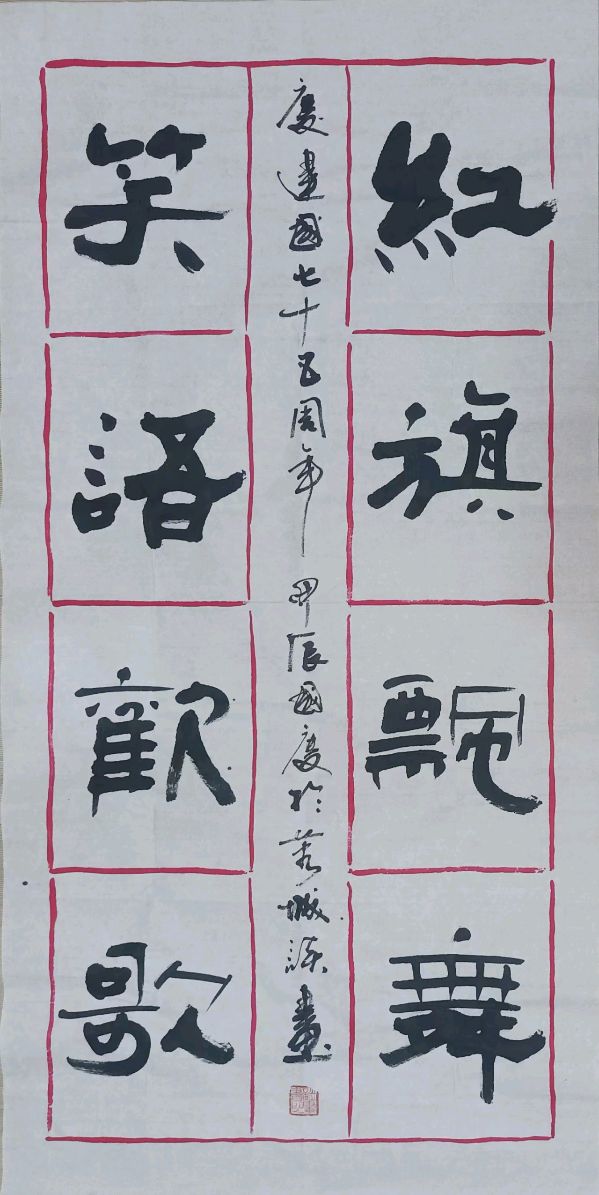 紅旗飄舞
笑語歡歌
慶建國七十五周年 甲辰國慶於蓉城